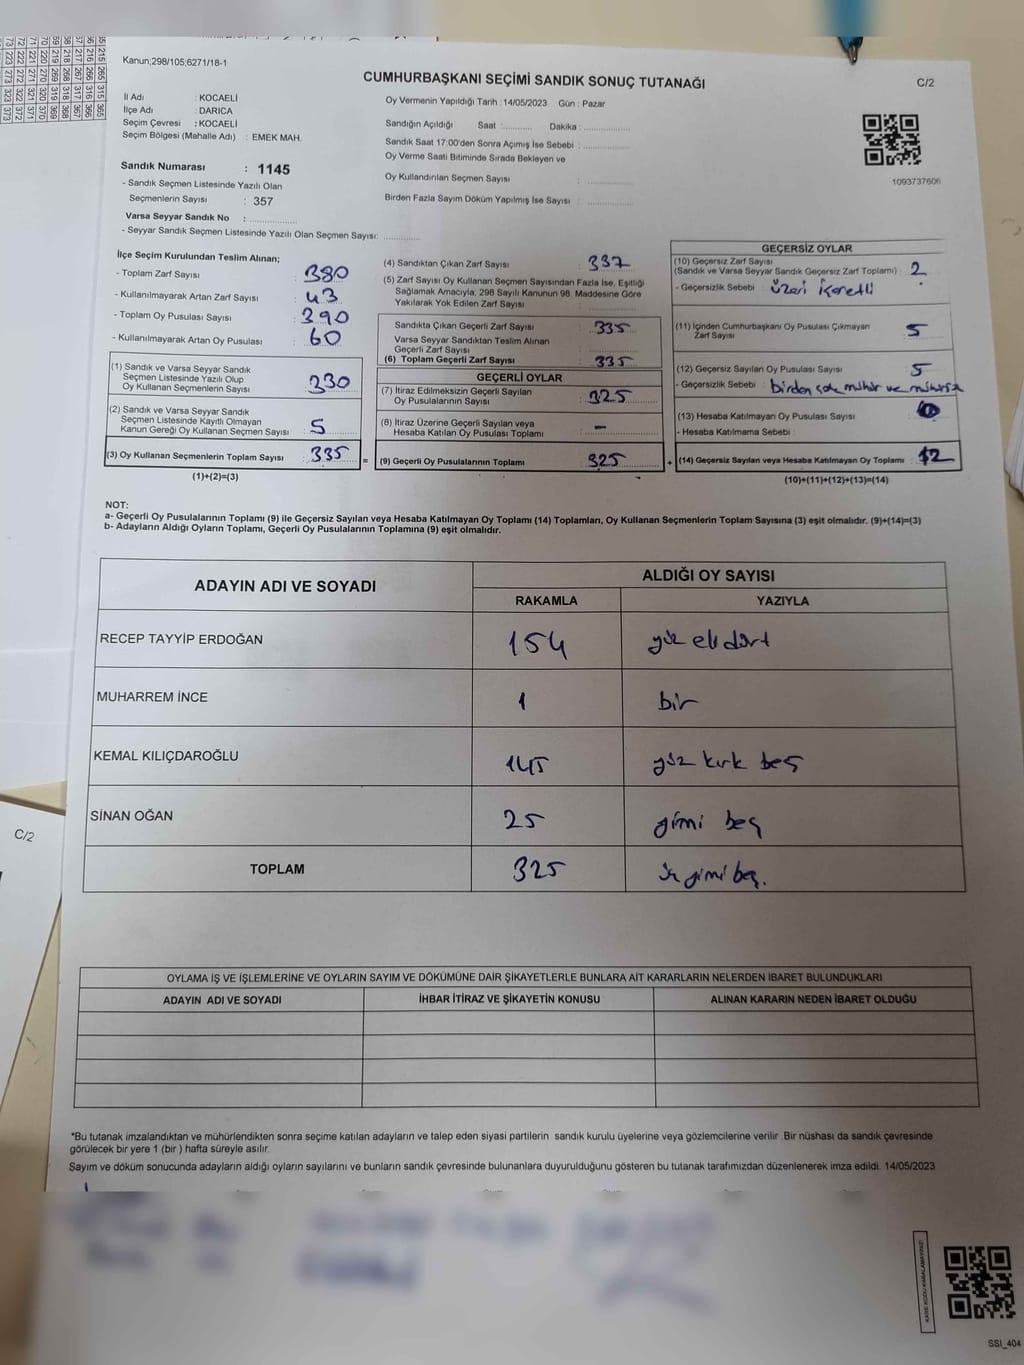 Kanun;298/105;6271/18-1
CUMHURBAŞKANI SEÇİMİ SANDIK SONUÇ TUTANAĞI
C/2
İl Adı : KOCAELİ
İlçe Adı : DARICA
Seçim Çevresi : KOCAELİ
Seçim Bölgesi (Mahalle Adı) : EMEK MAH.
Oy Vermenin Yapıldığı Tarih : 14/05/2023 Gün : Pazar
Sandığın Açıldığı Saat : Dakika :
Sandık Saat 17:00'den Sonra Açımış İse Sebebi :
Oy Verme Saati Bitiminde Sırada Bekleyen ve
Oy Kullandırılan Seçmen Sayısı :
Birden Fazla Sayım Döküm Yapılmış İse Sayısı :
1093737606
Sandık Numarası : 1145
- Sandık Seçmen Listesinde Yazılı Olan
Seçmenlerin Sayısı : 357
Varsa Seyyar Sandık No :
- Seyyar Sandık Seçmen Listesinde Yazılı Olan Seçmen Sayısı:
İlçe Seçim Kurulundan Teslim Alınan;
- Toplam Zarf Sayısı : 380
- Kullanılmayarak Artan Zarf Sayısı : 43
- Toplam Oy Pusulası Sayısı : 390
- Kullanılmayarak Artan Oy Pusulası : 60
(1) Sandık ve Varsa Seyyar Sandık
Seçmen Listesinde Yazılı Olup
Oy Kullanan Seçmenlerin Sayısı : 330
(2) Sandık ve Varsa Seyyar Sandık
Seçmen Listesinde Kayıtlı Olmayan
Kanun Gereği Oy Kullanan Seçmen Sayısı : 5
(3) Oy Kullanan Seçmenlerin Toplam Sayısı : 335
(1)+(2)=(3)
(4) Sandıktan Çıkan Zarf Sayısı : 337
(5) Zarf Sayısı Oy Kullanan Seçmen Sayısından Fazla İse, Eşitliği
Sağlamak Amacıyla; 298 Sayılı Kanunun 98. Maddesine Göre
Yakılarak Yok Edilen Zarf Sayısı :
Sandıkta Çıkan Geçerli Zarf Sayısı : 335
Varsa Seyyar Sandıktan Teslim Alınan
Geçerli Zarf Sayısı :
(6) Toplam Geçerli Zarf Sayısı : 335
GEÇERLİ OYLAR
(7) İtiraz Edilmeksizin Geçerli Sayılan
Oy Pusulalarının Sayısı : 325
(8) İtiraz Üzerine Geçerli Sayılan veya
Hesaba Katılan Oy Pusulası Toplamı : -
= (9) Geçerli Oy Pusulalarının Toplamı : 325
GEÇERSİZ OYLAR
(10) Geçersiz Zarf Sayısı
(Sandık ve Varsa Seyyar Sandık Geçersiz Zarf Toplamı) : 2
- Geçersizlik Sebebi : üzeri işaretli
(11) İçinden Cumhurbaşkanı Oy Pusulası Çıkmayan
Zarf Sayısı : 5
(12) Geçersiz Sayılan Oy Pusulası Sayısı : 5
- Geçersizlik Sebebi : birden çok mühür ve
(13) Hesaba Katılmayan Oy Pusulası Sayısı :
- Hesaba Katılmama Sebebi :
+ (14) Geçersiz Sayılan veya Hesaba Katılmayan Oy Toplamı : 12
(10)+(11)+(12)+(13)=(14)
NOT:
a- Geçerli Oy Pusulalarının Toplamı (9) ile Geçersiz Sayılan veya Hesaba Katılmayan Oy Toplamı (14) Toplamları, Oy Kullanan Seçmenlerin Toplam Sayısına (3) eşit olmalıdır. (9)+(14)=(3)
b- Adayların Aldığı Oyların Toplamı, Geçerli Oy Pusulalarının Toplamına (9) eşit olmalıdır.
ADAYIN ADI VE SOYADI
ALDIĞI OY SAYISI
RAKAMLA YAZIYLA
RECEP TAYYİP ERDOĞAN 154 yüz elli dört
MUHARREM İNCE 1 bir
KEMAL KILIÇDAROĞLU 145 yüz kırk beş
SİNAN OĞAN 25 yirmi beş
TOPLAM 325 üç yirmi beş.
OYLAMA İŞ VE İŞLEMLERİNE VE OYLARIN SAYIM VE DÖKÜMÜNE DAİR ŞİKAYETLERLE BUNLARA AİT KARARLARIN NELERDEN İBARET BULUNDUKLARI
ADAYIN ADI VE SOYADI İHBAR İTİRAZ VE ŞİKAYETİN KONUSU ALINAN KARARIN NEDEN İBARET OLDUĞU
*Bu tutanak imzalandıktan ve mühürlendikten sonra seçime katılan adayların ve talep eden siyasi partilerin sandık kurulu üyelerine veya gözlemcilerine verilir. Bir nüshası da sandık çevresinde
görülecek bir yere 1 (bir ) hafta süreyle asılır.
Sayım ve döküm sonucunda adayların aldığı oyların sayılarını ve bunların sandık çevresinde bulunanlara duyurulduğunu gösteren bu tutanak tarafımızdan düzenlenerek imza edildi. 14/05/2023
C/2
KARE KODU KARALAMAYINIZ!
SSI_404